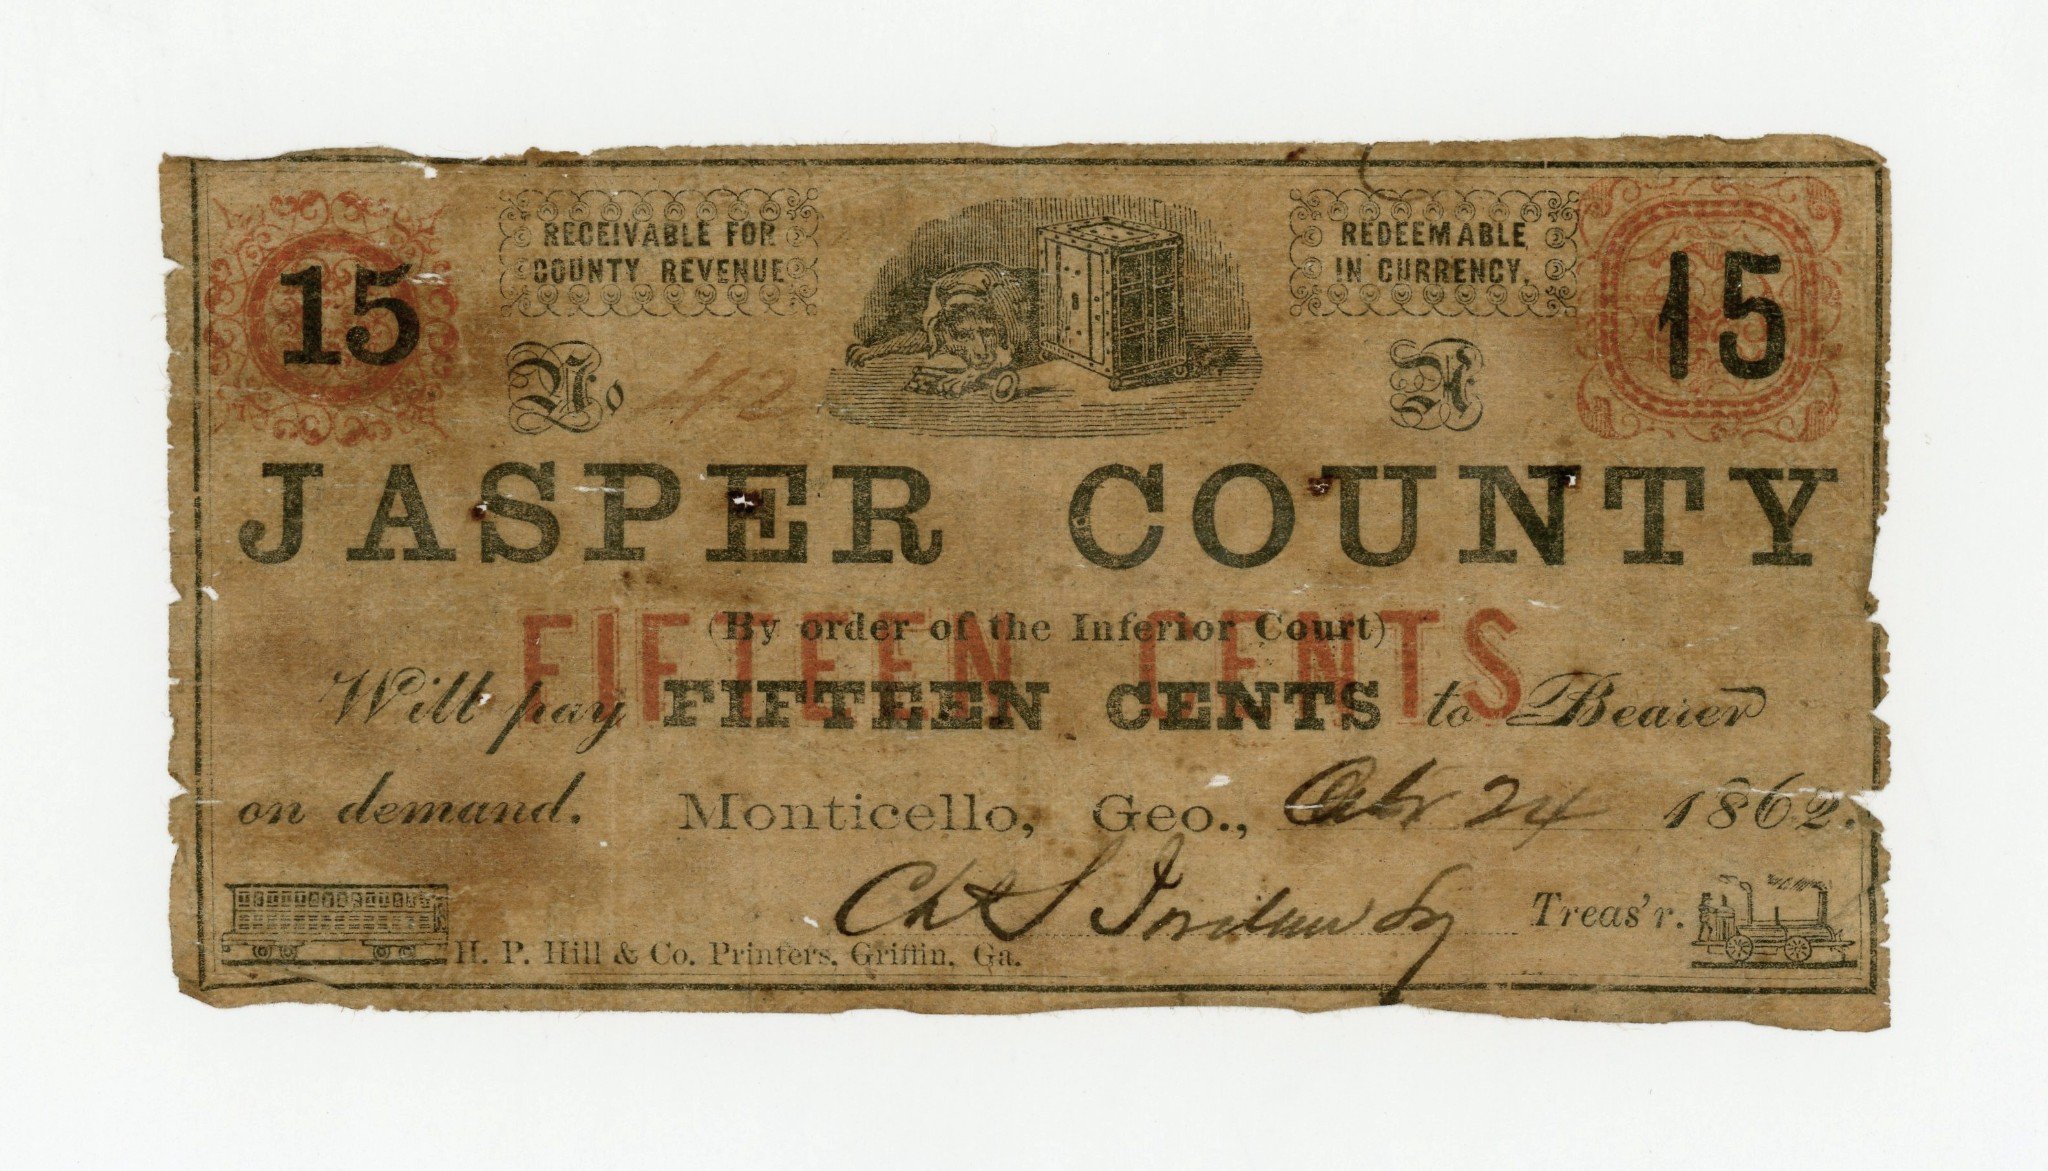 15
RECEIVABLE FOR
COUNTY REVENUE
REDEEMABLE
IN CURRENCY.
15
No 42
A
JASPER COUNTY
FIFTEEN CENTS
(By order of the Inferior Court)
Will pay FIFTEEN CENTS to Bearer
on demand. Monticello, Geo., 24 1862.
Treas'r.
H. P. Hill & Co. Printers, Griffin, Ga.